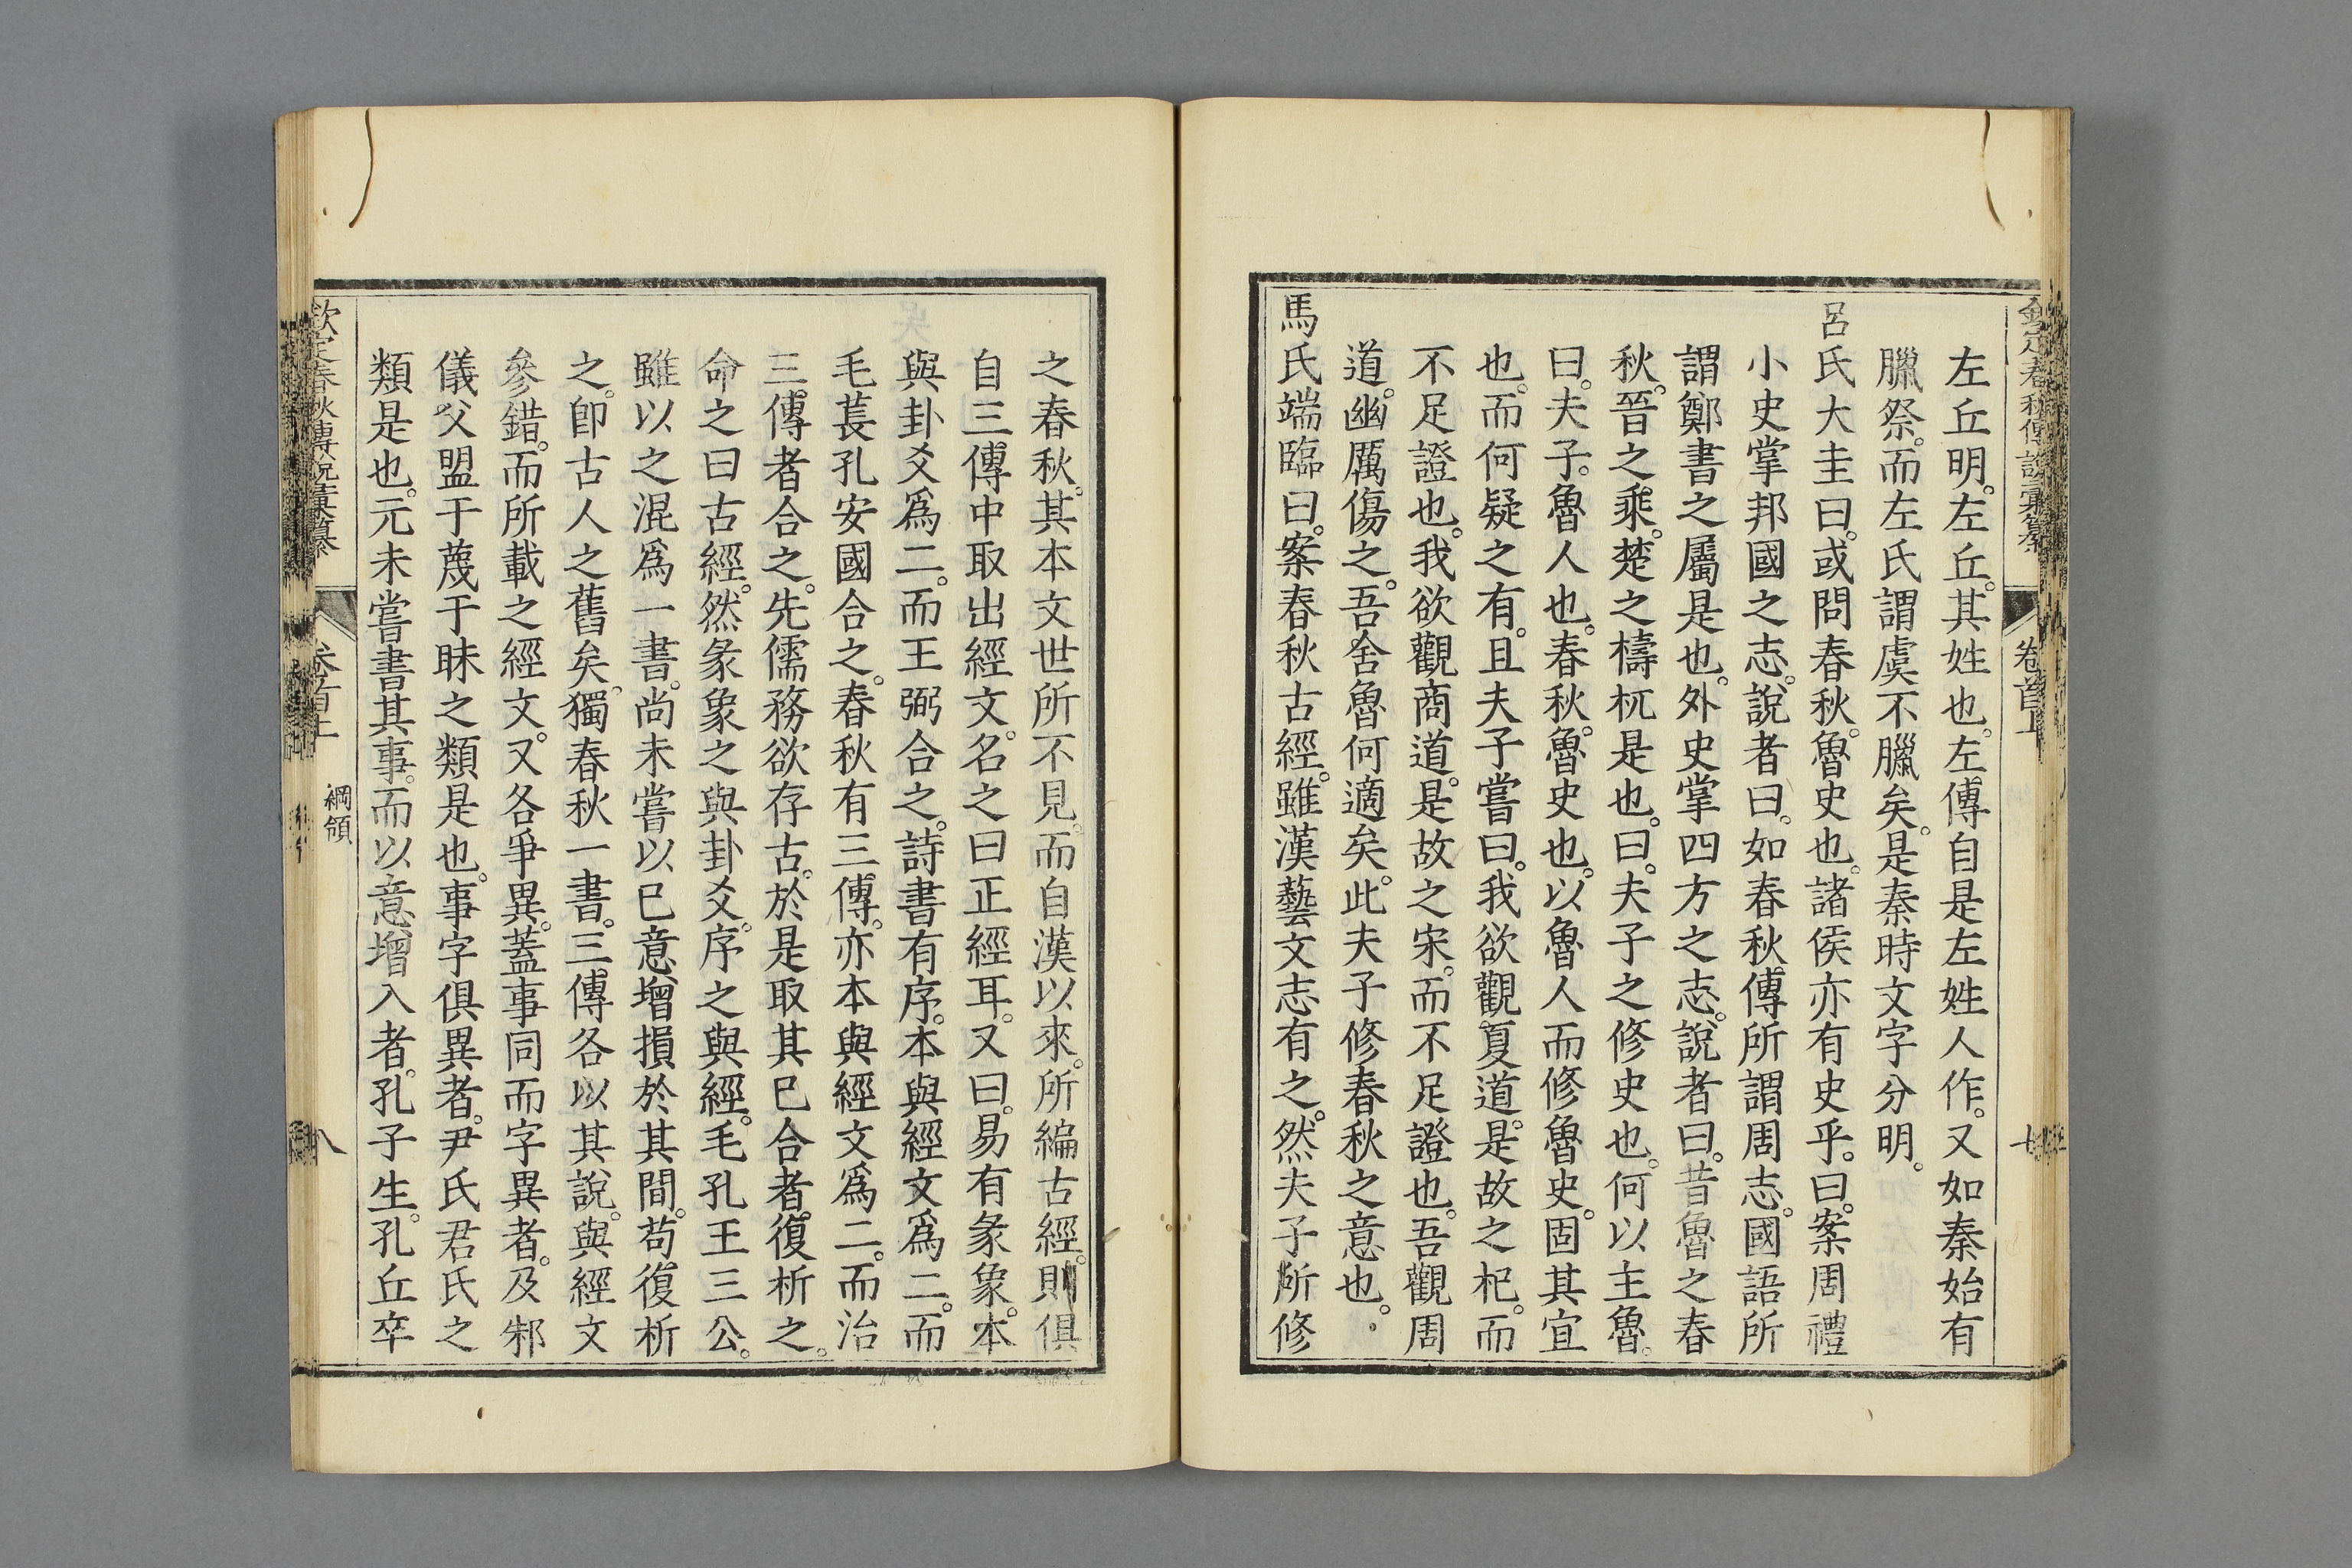 欽定春秋傳說彙纂 卷首上 七
左丘明。左丘。其姓也。左傳自是左姓人作。又如秦始有
臘祭。而左氏謂虞不臘矣。是秦時文字分明。
呂氏大圭曰。或問春秋。魯史也。諸侯亦有史乎。曰。案周禮
小史掌邦國之志。說者曰。如春秋傳所謂周志。國語所
謂鄭書之屬是也。外史掌四方之志。說者曰。昔魯之春
秋。晉之乘。楚之檮杌是也。曰。夫子之修史也。何以主魯。
曰。夫子。魯人也。春秋。魯史也。以魯人而修魯史。固其宜
也。而何疑之有。且夫子嘗曰。我欲觀夏道。是故之杞。而
不足證也。我欲觀商道。是故之宋。而不足證也。吾觀周
道。幽厲傷之。吾舍魯何適矣。此夫子修春秋之意也。
馬氏端臨曰。案春秋古經。雖漢藝文志有之。然夫子所修
之春秋。其本文世所不見。而自漢以來。所編古經。則俱
自三傳中取出經文。名之曰正經耳。又曰。易有彖象。本
與卦爻爲二。而王弼合之。詩書有序。本與經文爲二。而
毛萇孔安國合之。春秋有三傳。亦本與經文爲二。而治
三傳者合之。先儒務欲存古。於是取其已合者。復析之。
命之曰古經。然彖象之與卦爻。序之與經。毛孔王三公。
雖以之混爲一書。尚未嘗以已意增損於其間。苟復析
之。卽古人之舊矣。獨春秋一書。三傳各以其說。與經文
參錯。而所載之經文。又各爭異。蓋事同而字異者。及邾
儀父盟于蔑于眛之類是也。事字俱異者。尹氏君氏之
類是也。元未嘗書其事。而以意增入者。孔子生。孔丘卒
欽定春秋傳說彙纂 卷首上 綱領 八